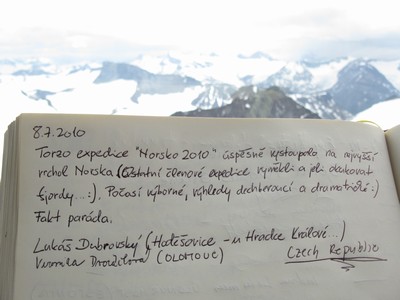 8.7.2010
Torzo expedice "Norsko 2010" úspěšně vystoupalo na nejvyšší
vrchol Norska (Ostatní členové expedice vyměkli a jeli okukovat
fjordy...:). Počasí výborné, výhledy dechberoucí a dramatické :)
Fakt paráda.
Lukáš Dubrovský (Hoděšovice - u Hradce Králové...)
(OLOMOUC) Czech Republic